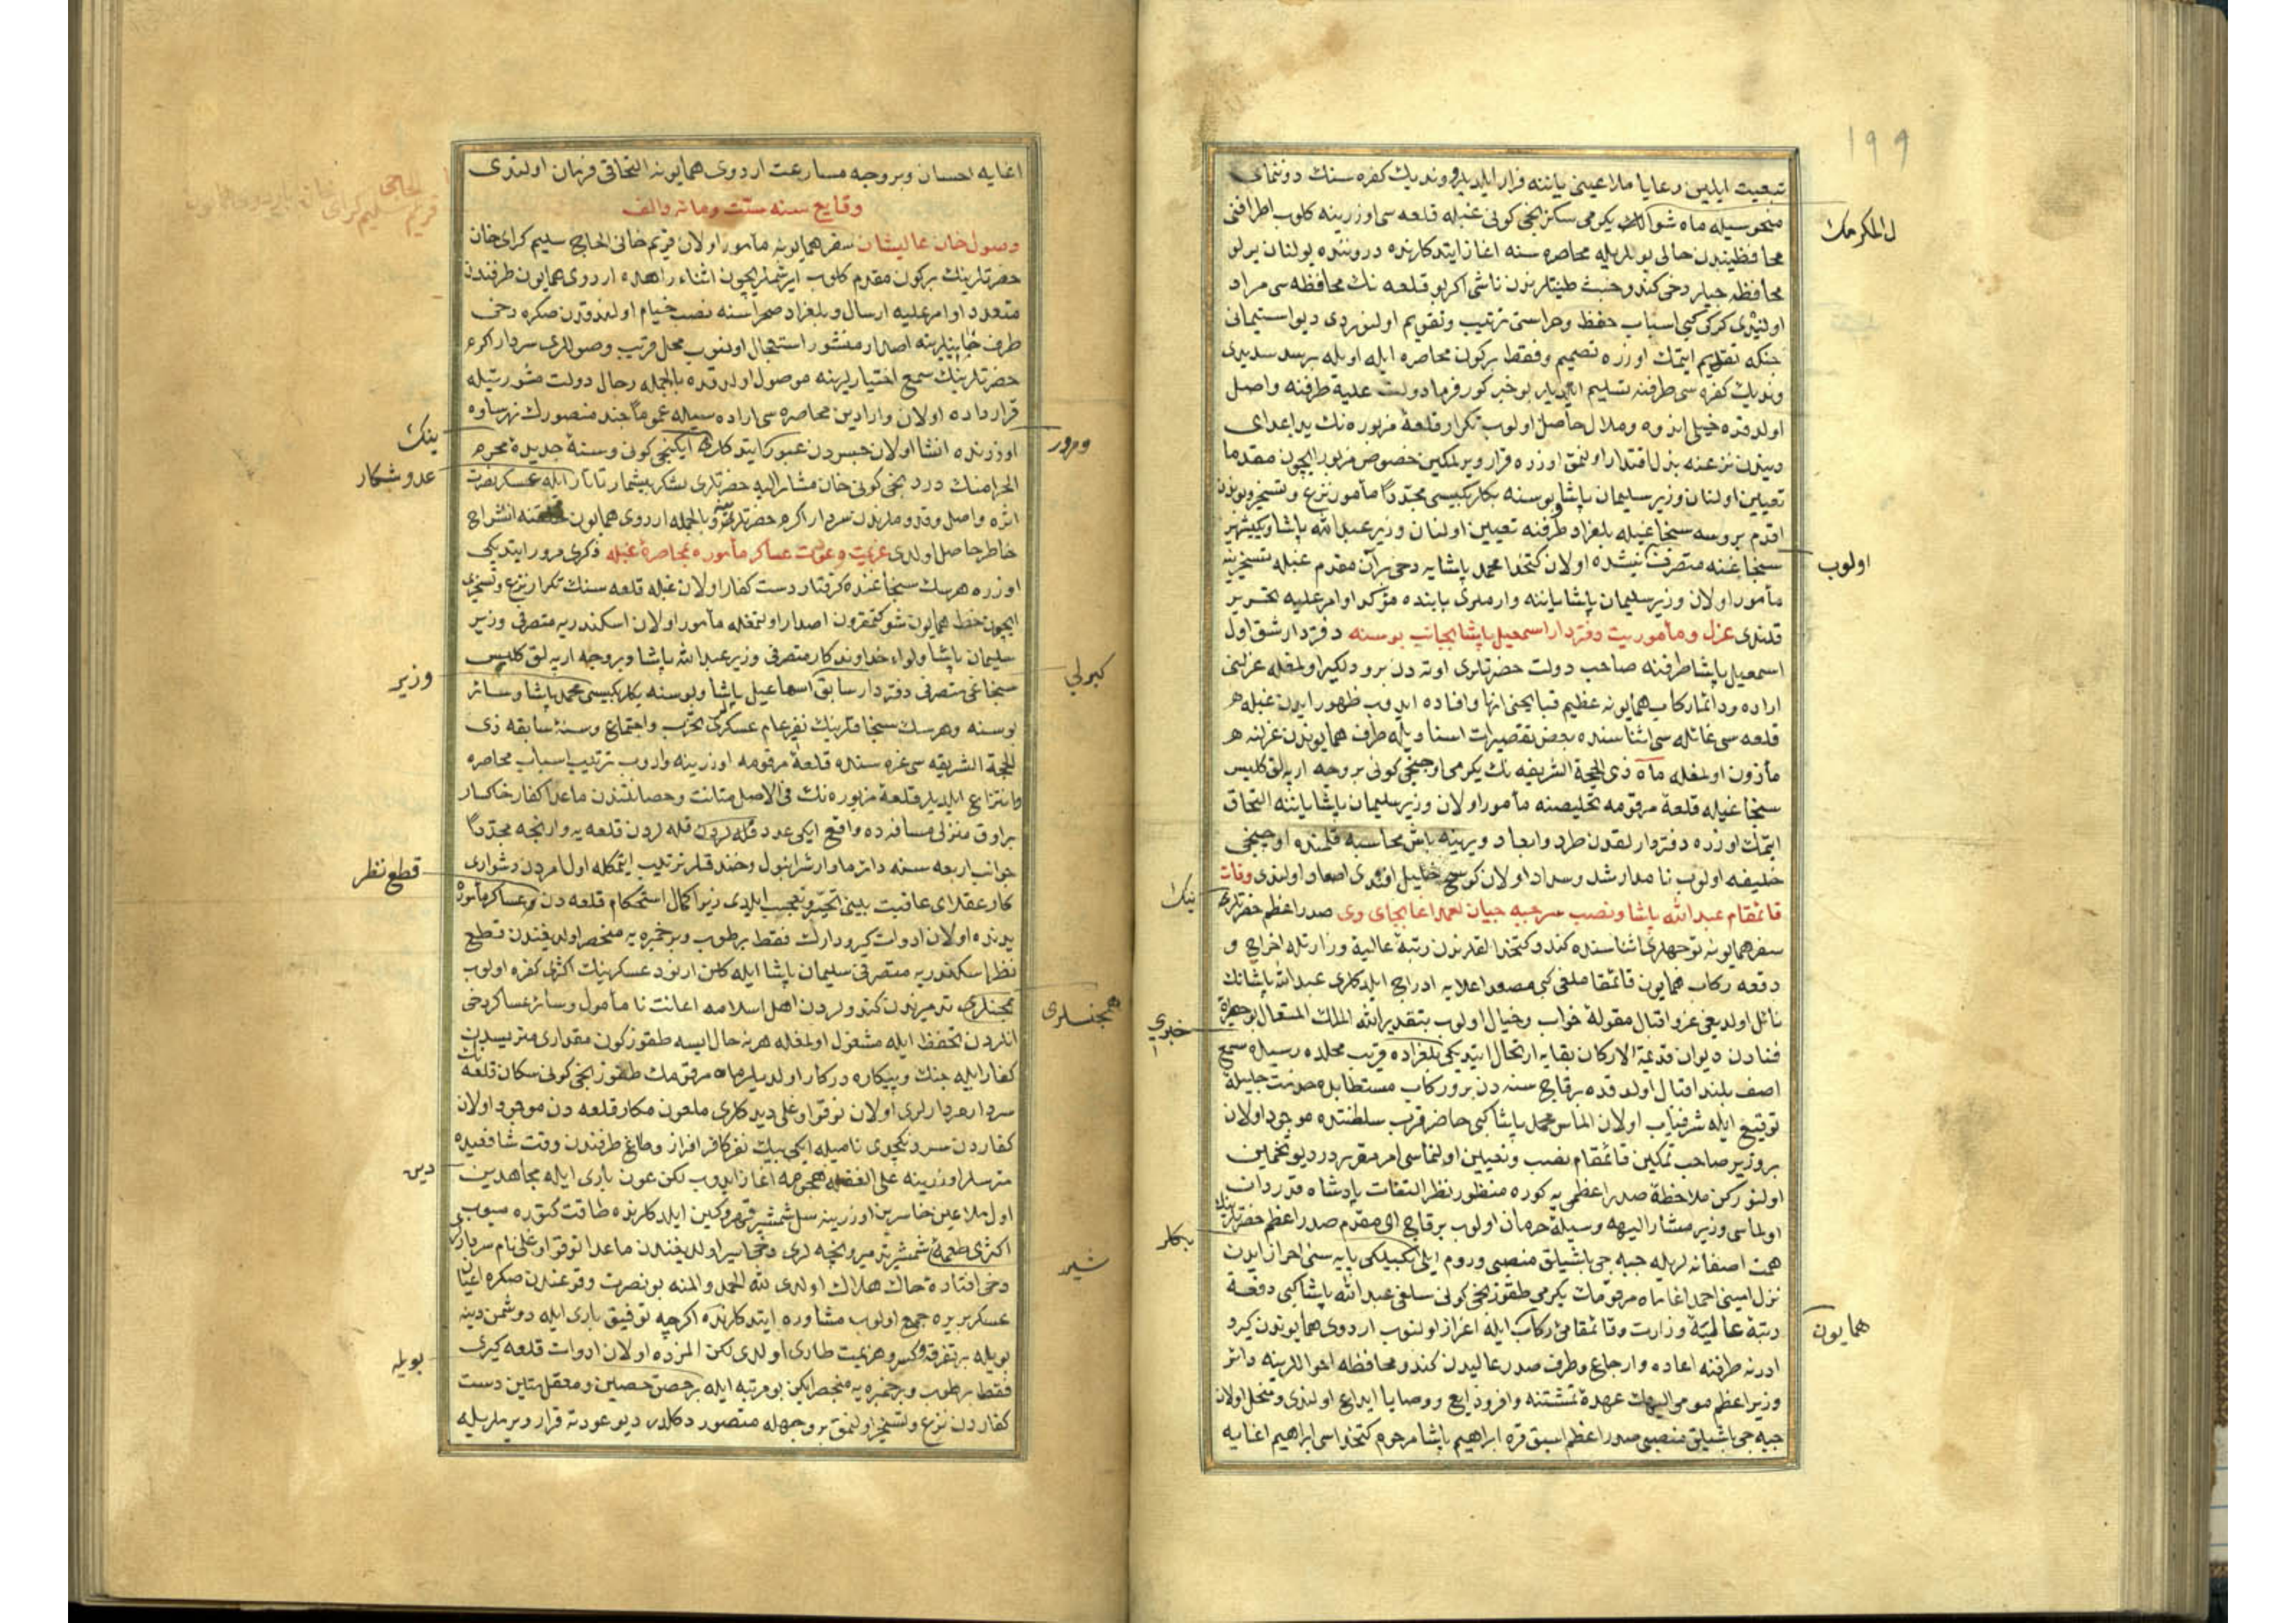 ١٩٩
تبعیت ایلین رعایا ملاعینی یاننه فرار ایلدیلر وندیك کفره سنك دونمای
منحوسیله ماه شوال المکرمك یکرمی سکزنجی کونی غبله قلعه سی اوزرینه کلوب اطرافنی
محافظیندن خالی بولدیله محاصره سنه اغاز ایتدکلرنده دروننده بولنان یرلو
محافظه جیلر دخی کندو خبث طینتلرندن ناشی اکر بو قلعه نك محافظه سی مراد
اولنیدی کرکی کبی اسباب حفظ وحراستی ترتیب وتقویم اولنوردی دیو استیمانی
جنکه تقدیم ایتمك اوزره تصمیم وفقط بر کون محاصره ایله اویله بر سد سدیدی
وندیك کفره سی طرفنه تسلیم ایلدیلر بو خبر کورفرما دولت علیه طرفنه واصل
اولدقده خیلی اندوه وملال حاصل اولوب تکرار قلعۀ مزبوره نك ید اعدای
دیندن نزعنه بذل اقتدار اولنمق اوزره قرار ویرلمکین خصوص مزبور ایچون مقدما
تعیین اولنان وزیر سلیمان پاشا وبوسنه بکلربکیسی مجددا مأمور نزع وتسخیر وبوندن
اقدم بروسه سنجاغیله بلغراد طرفنه تعیین اولنان وزیر عبدالله پاشا ویکیشهر
سنجاغنه متصرف اولوب نیشده اولان کتخدا محمد پاشایه دخی بر آن مقدم غبله تسخیرینه
مأمور اولان وزیر سلیمان پاشا یاننه وارملری بابنده مؤکد اوامر علیه تحریر
قلندی عزل ومأموریت دفتردار اسمعیل پاشا بجانب بوسنه دفتردار شق اول
اسمعیل پاشا طرفنه صاحب دولت حضرتلری اوته دن برو دلکیر اولمغله عزلنی
اراده ودائما رکاب همایونه عظیم قبایحنی انها وافاده ایدوب ظهور ایدن غبله
قلعه سی غائله سی اثناسنده بعض تقصیرات اسنادیله طرف همایوندن عزلنه
مأذون اولمغله ماه ذی الحجة الشریفه نك یکرمی اوچنجی کونی بروجه ارپه لق کلیس
سنجاغیله قلعۀ مرقومه تخلیصنه مأمور اولان وزیر سلیمان پاشا یاننه التحاق
ایتمك اوزره دفتردارلقدن طرد وابعاد ویرینه باش محاسبه قلمنده اوچنجی
خلیفه اولوب نامدار رشد وسداد اولان کوسج خلیل افندی اصعاد اولندی وفات
قائمقام عبدالله پاشا ونصب سر جبه جیان احمد اغا بجای وی صدر اعظم حضرتلرینك
سفر همایونه توجهلری اثناسنده کندو کتخدالقلرندن رتبۀ عالیۀ وزارتله اخراج و
دفعه رکاب همایون قائمقاملغی کبی مصعد اعلایه ادراج ایلدکلری عبدالله پاشانك
نائل اولدیغی عز واقبال مقولۀ خواب وخیال اولوب بتقدیر الله الملك المتعال بو جهرۀ
فنادن دیوان قدیمة الارکان بقایه ارتحال ایتدیکی خبری بلغراده قریب محلده رسیدۀ سمع
اصف بلند اقبال اولدقده بر قاچ سنه دن برو رکاب مستطابده خدمت جلیلۀ
توقیع ایله شرفیاب اولان الماس محمد پاشا کبی حاضر قرب سلطنتده موجود اولان
بر وزیر صاحب تمکین قائمقام نصب وتعیین اولنماسی امر مقرردر دیو تخمین
اولنورکن ملاحظۀ صدر اعظمی یه کوره منظور نظر التفات پادشاه قدردان
اولماسی وزیر مشار الیهه وسیلۀ حرمان اولوب بر قاچ ای مقدم صدر اعظم حضرتلرینك
همت اصفانه لریله جبه جی باشیلق منصبی وروم ایلی بکلربکیلکی پایه سنی احراز ایدن
نزل امینی احمد اغا ماه مرقومك یکرمی طقوزنجی کونی سلفی عبدالله پاشا کبی دفعة
رتبۀ عالیۀ وزارت وقائمقامئ رکاب همایون ایله اعزاز اولنوب اردوی همایوندن کیرو
ادرنه طرفنه اعاده وارجاع وطرف صدر عالیدن کندو محافظۀ احواللرینه دائر
وزیر اعظم مومی الیهك عهدۀ تمشیتنه وافر ودایع ووصایا ایداع اولندی ومنحل اولان
جبه جی باشیلق منصبی صدر اعظم اسبق قره ابراهیم پاشا مرحوم کتخداسی ابراهیم اغایه
اغایه احسان وبروجه مسارعت اردوی همایونه التحاقی فرمان اولندی
وقایع سنه ستت ومائه والف
وصول خان عالیشان سفر همایونه مأمور اولان قریم خانی الحاج سلیم کرای خان
حضرتلرینك بر کون مقدم کلوب ایرشملری ایچون اثناء راهده اردوی همایون طرفندن
متعدد اوامر علیه ارسال وبلغراد صحراسنه نصب خیام اولندقدن صکره دخی
طرف خانیلرینه اصدار منشور استعجال اولنوب محل قریب وصوللری سردار اکرم
حضرتلرینك سمع اختیارلرینه موصول اولدقده بالجمله رجال دولت مشورتیله
قرارداده اولان وارادین محاصره سی اراده سیله عموما جند منصورك نهر ساوه
اوزرنده انشا اولان جسردن عبور ومرور ایتدکلرینك ایکینجی کونی وسنۀ جدیدۀ محرم
الحرامنك دردنجی کونی خان مشار الیه حضرتلری لشکر بیشمار تاتار عدوشکار ایله عسکر نصرت
اثره واصل وقدوملرندن سردار اکرم حضرتلرینه وبالجمله اردوی همایون خلقنه انشراح
خاطر حاصل اولدی عزیمت وعودت عساکر مأموره بمحاصرۀ غبله ذکری مرور ایتدیکی
اوزره هرسك سنجاغنده کرفتار دست کفار اولان غبله قلعه سنك تکرار نزع وتسخیری
ایچون خط همایون شوکتمقرون اصدار اولنمغله مأمور اولان اسکندریه متصرفی وزیر
سلیمان پاشا ولواء خداوندکار متصرفی وزیر عبدالله پاشا وبروجه ارپه لق کلیس
سنجاغی متصرفی دفتردار سابق وزیر اسماعیل پاشا وبوسنه بکلربکیسی محمد پاشا وسائر
بوسنه وهرسك سنجاقلرینك نفیر عام عسکری تحزب واجتماع وسنۀ سابقه ذی
الحجة الشریفه سی غره سنده قلعۀ مرقومه اوزرینه واروب ترتیب اسباب محاصره
وانتزاع ایلدیلر قلعۀ مزبوره نك فی الاصل متانت وحصانتندن ماعدا کفار خاکسار
براوق منزلی مسافه ده واقع ایکی عدد قله لردن قلعه یه وارنجه مجددا
جوانب اربعه سنه دائرما دار شرانپول وخندقلر ترتیب ایتمکله اول امردن دشواری
کار عقلای عاقبت بینی تحیر وتعجب ایلدی زیرا کمال استحکام قلعه دن قطع نظر عساکر مأموره
یدنده اولان ادوات کیرودارك فقط بر طوب وبر خمبره یه منحصر اولدیغندن قطع
نظر اسکندریه متصرفی سلیمان پاشا ایله کلن ارنود عسکرینك اکثری کفره اولوب
همجنسلری تدمیرندن کندولردن اهل اسلامه اعانت نامأمول وسائر عساکر دخی
انلردن تحفظ ایله مشغول اولمغله هر نه حال ایسه طقوز کون مقداری متریسدن
کفار ایله جنك وپیکاره درکار اولدیلر ماه مرقومك طقوزنجی کونی سکان قلعه نك
سردار مردارلری اولان نوقو اوغلی دیدکلری ملعون مکار قلعه دن موجود اولان
کفاردن سردنکچدی نامیله ایکی بیك نفر کافر افراز وطاغ طرفندن وقت شافعیده
مترسلر اوزرینه علی الغفله هجومه اغاز ایدوب لکن عون باری ایله مجاهدین دین
اول ملاعین خاسرین اوزرینه سل شمشیر قهر وکین ایلدکلرنده طاقت کتورمیوب
اکثری طعمۀ شمشیر تدمیر ونیجه لری دخی اسیر اولدیغندن ماعدا نوقو اوغلی نام سردارلری
دخی افتادۀ خاك هلاك اولدی لله الحمد والمنه بو نصرت وقوعندن صکره اعیان
عسکر بر یره جمع اولوب مشاوره ایتدکلرنده اکرچه توفیق باری ایله دوشمن دینه
بویله بر تفرقه وکسر وهزیمت طاری اولدی لکن المزده اولان ادوات قلعه کیری
فقط بر طوب وبر خمبره یه منحصر ایکن بو مرتبه ایله بر حصن حصین ومعقل متین دست
کفاردن نزع وتسخیر اولنمق بر وجهله متصور دکلدر دیو عودته قرار ویرملریله